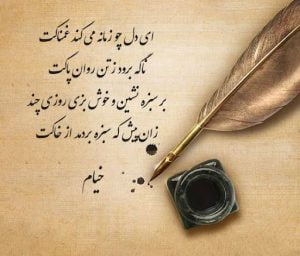 ای دل چو زمانه می کند غمناکت
ناگه برود ز تن روان پاکت
بر سبزه نشین و خوش بزی روزی چند
زان پیش که سبزه بردمد از خاکت
خیام